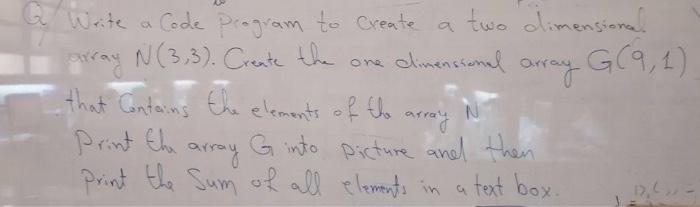 Q/ Write a Code Program to Create a two dimensional
array N(3,3). Create the one dimenssional array G(9,1)
that Contains the elements of the array N
Print the array G into picture and then
Print the Sum of all elements in a text box.